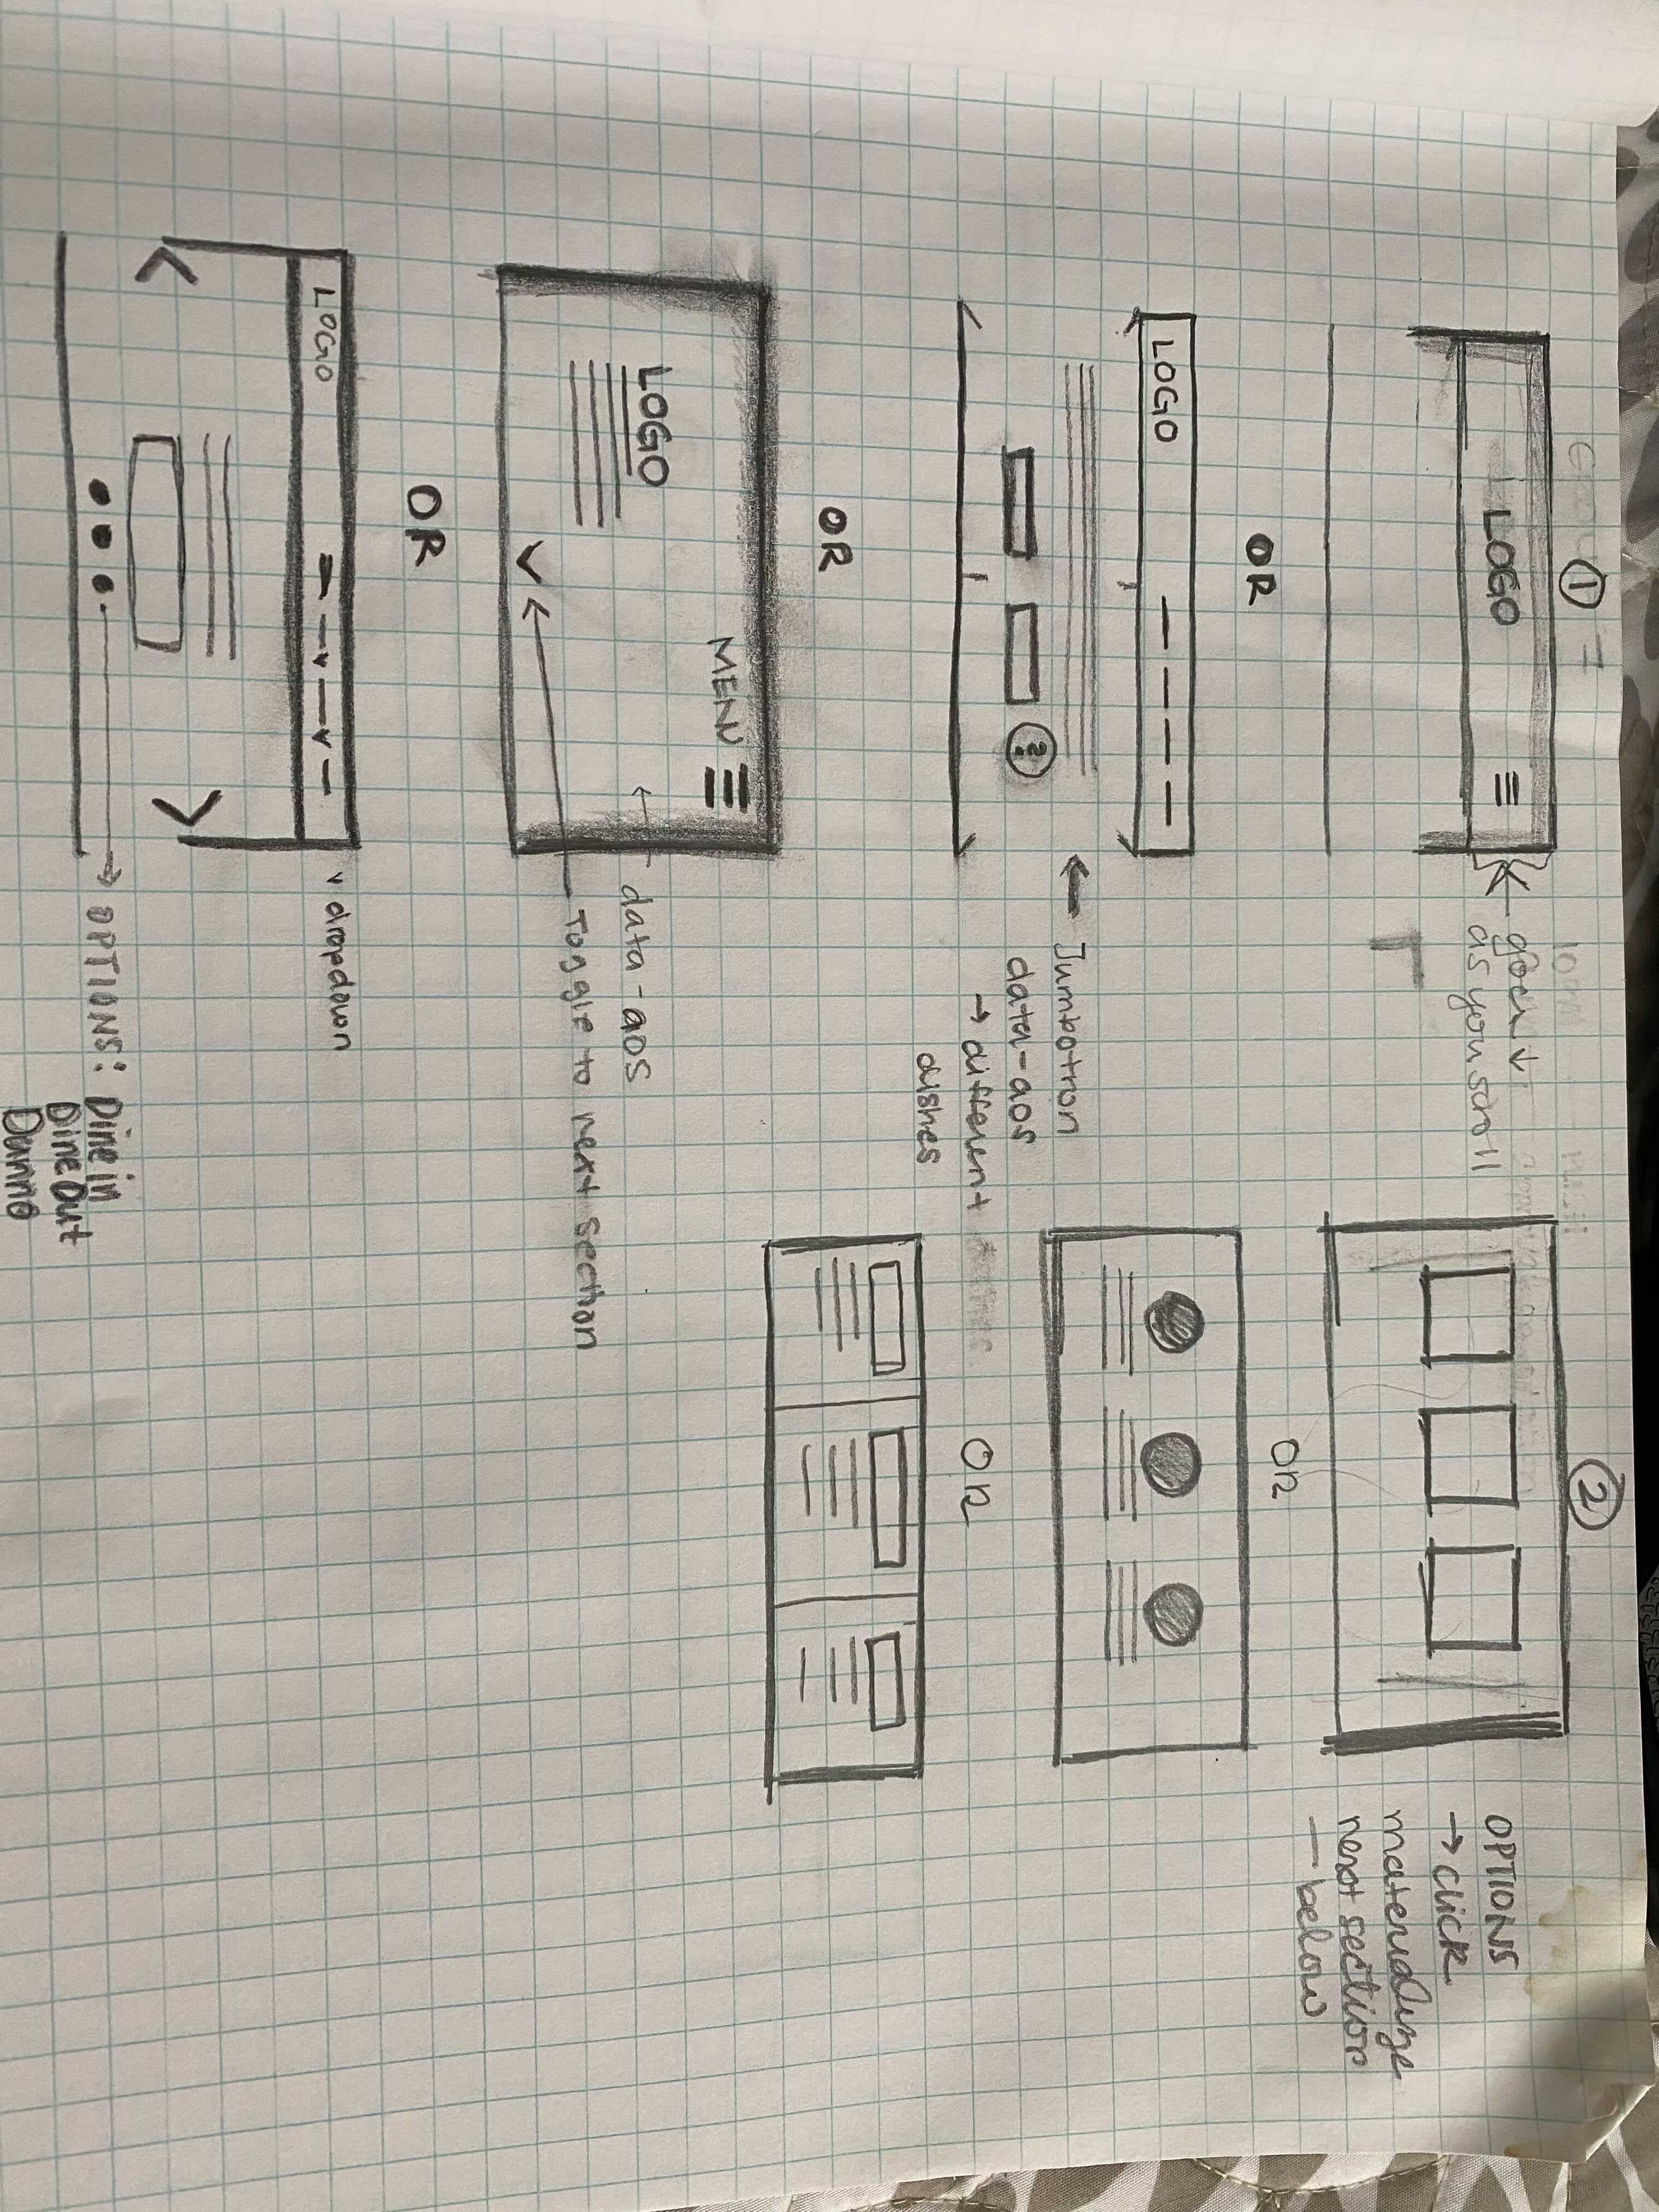 ①
LOGO
← goes ↓
as you scroll
OR
LOGO
← Jumbotron
data-aos
→ different
dishes
?
OR
MENU
LOGO
← data-aos
Toggle to next section
OR
LOGO
v dropdown
→ OPTIONS: Dine in
Dine Out
Dunno
②
OPTIONS
→ click
materialize
next section
— below
OR
OR